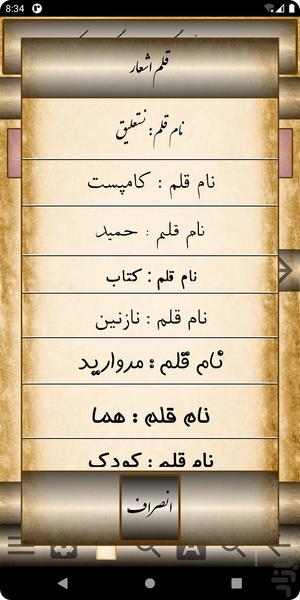 8:34
قلم اشعار
نام قلم : نستعلیق
نام قلم : کامپست
نام قلم : حمید
نام قلم : کتاب
نام قلم : نازنین
نام قلم : مروارید
نام قلم : هما
نام قلم : کودک
انصراف
A